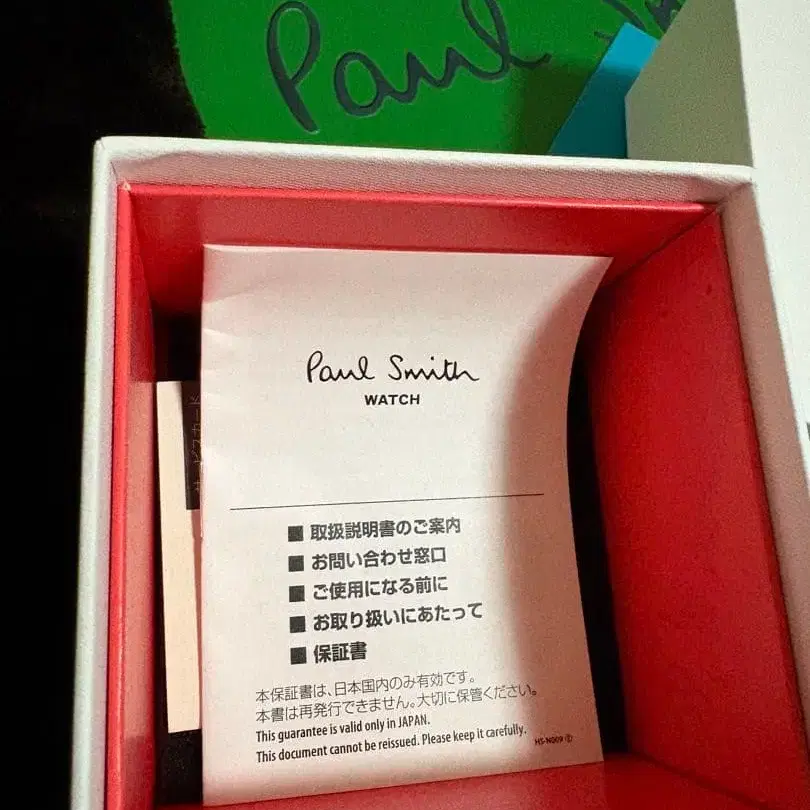 Paul
Paul Smith
WATCH
サービスカード
■ 取扱説明書のご案内
■ お問い合わせ窓口
■ ご使用になる前に
■ お取り扱いにあたって
■ 保証書
本保証書は、日本国内のみ有効です。
本書は再発行できません。大切に保管ください。
This guarantee is valid only in JAPAN.
This document cannot be reissued. Please keep it carefully.
HS-N009 Ⓔ